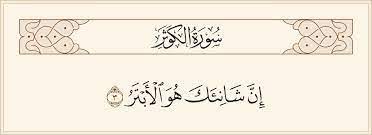 سُورَةُ الكَوْثَرِ
إِنَّ شَانِئَكَ هُوَ ٱلْأَبْتَرُ ٣